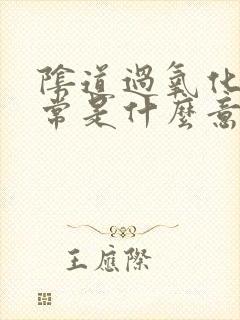 陰道過氧化
常是什麼意
王應際